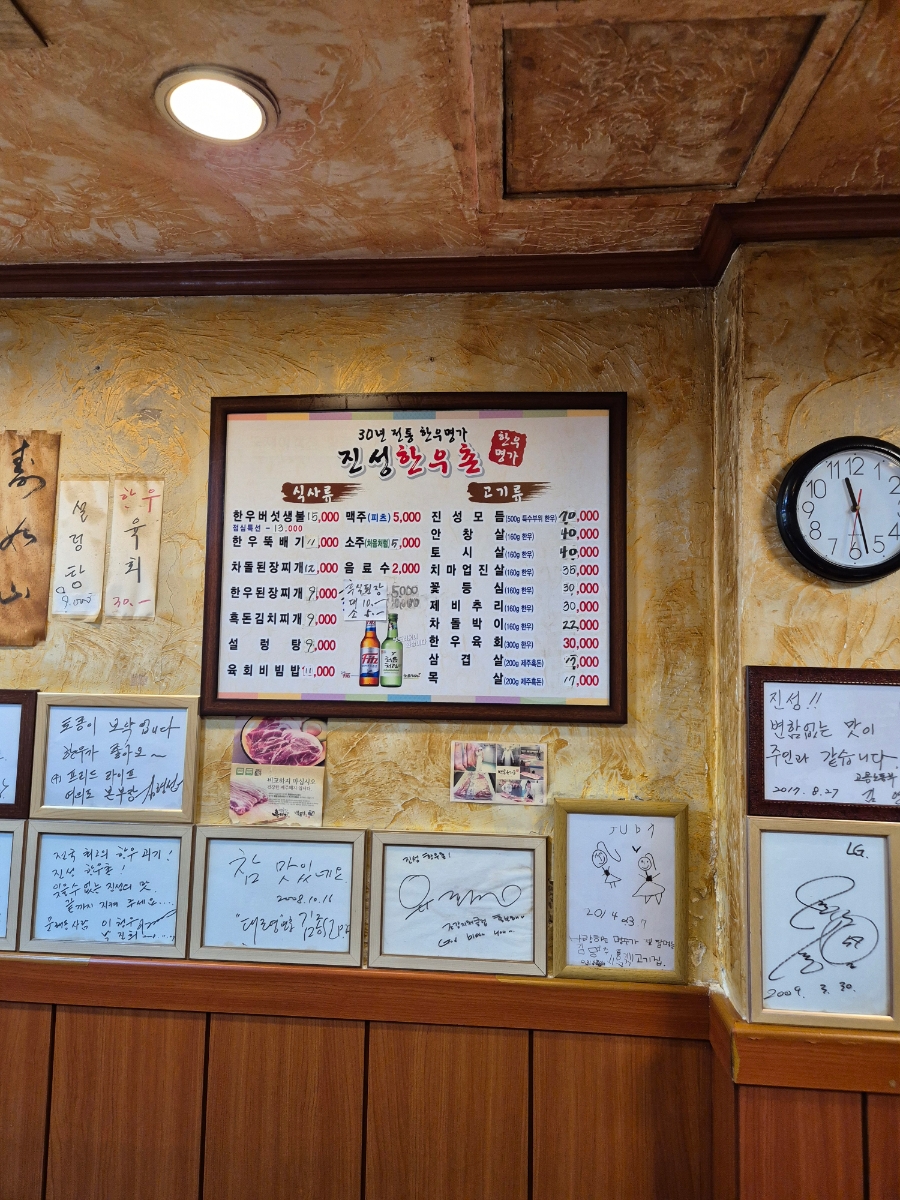 30년 전통 한우명가
진성한우촌
한우
명가
식사류
한우버섯생불 15,000
점심특선 - 13.000
한우뚝배기 11,000
차돌된장찌개 12,000
한우된장찌개 9,000
흑돈김치찌개 9,000
설렁탕 9,000
육회비빔밥 11,000
맥주(피츠) 5,000
소주(처음처럼) 5,000
음료수 2,000
대 10.-
소 5.-
Fitz
고기류
진성모듬(500g 특수부위 한우) 70,000
안창살(160g 한우) 40,000
토시살(160g 한우) 40,000
치마업진살(160g 한우) 35,000
꽃등심(160g 한우) 30,000
제비추리(160g 한우) 30,000
차돌박이(160g 한우) 22,000
한우육회(300g 한우) 30,000
삼겹살(200g 제주흑돈) 17,000
목살(200g 제주흑돈) 17,000
壽
如
山
설렁탕
9.000
한우
육회
30.-
11 12 1
10
9
8
7 6 5
토종이 보약입니다
한우가 좋아요~
㈜ 프리드 라이프
여의도 본부장
비교하지 마십시오
진성!!
변함없는 맛이
주인과 같습니다.
고용노동부
2017. 8. 27
전국 최고의 한우 고기!
진성 한우촌!
잊을수 없는 진성의 맛
끝까지 지켜 주세요....
참 맛있네요
2008.10.16
진성 한우촌!
God bless you
2014
LG.
2009. 3. 30.